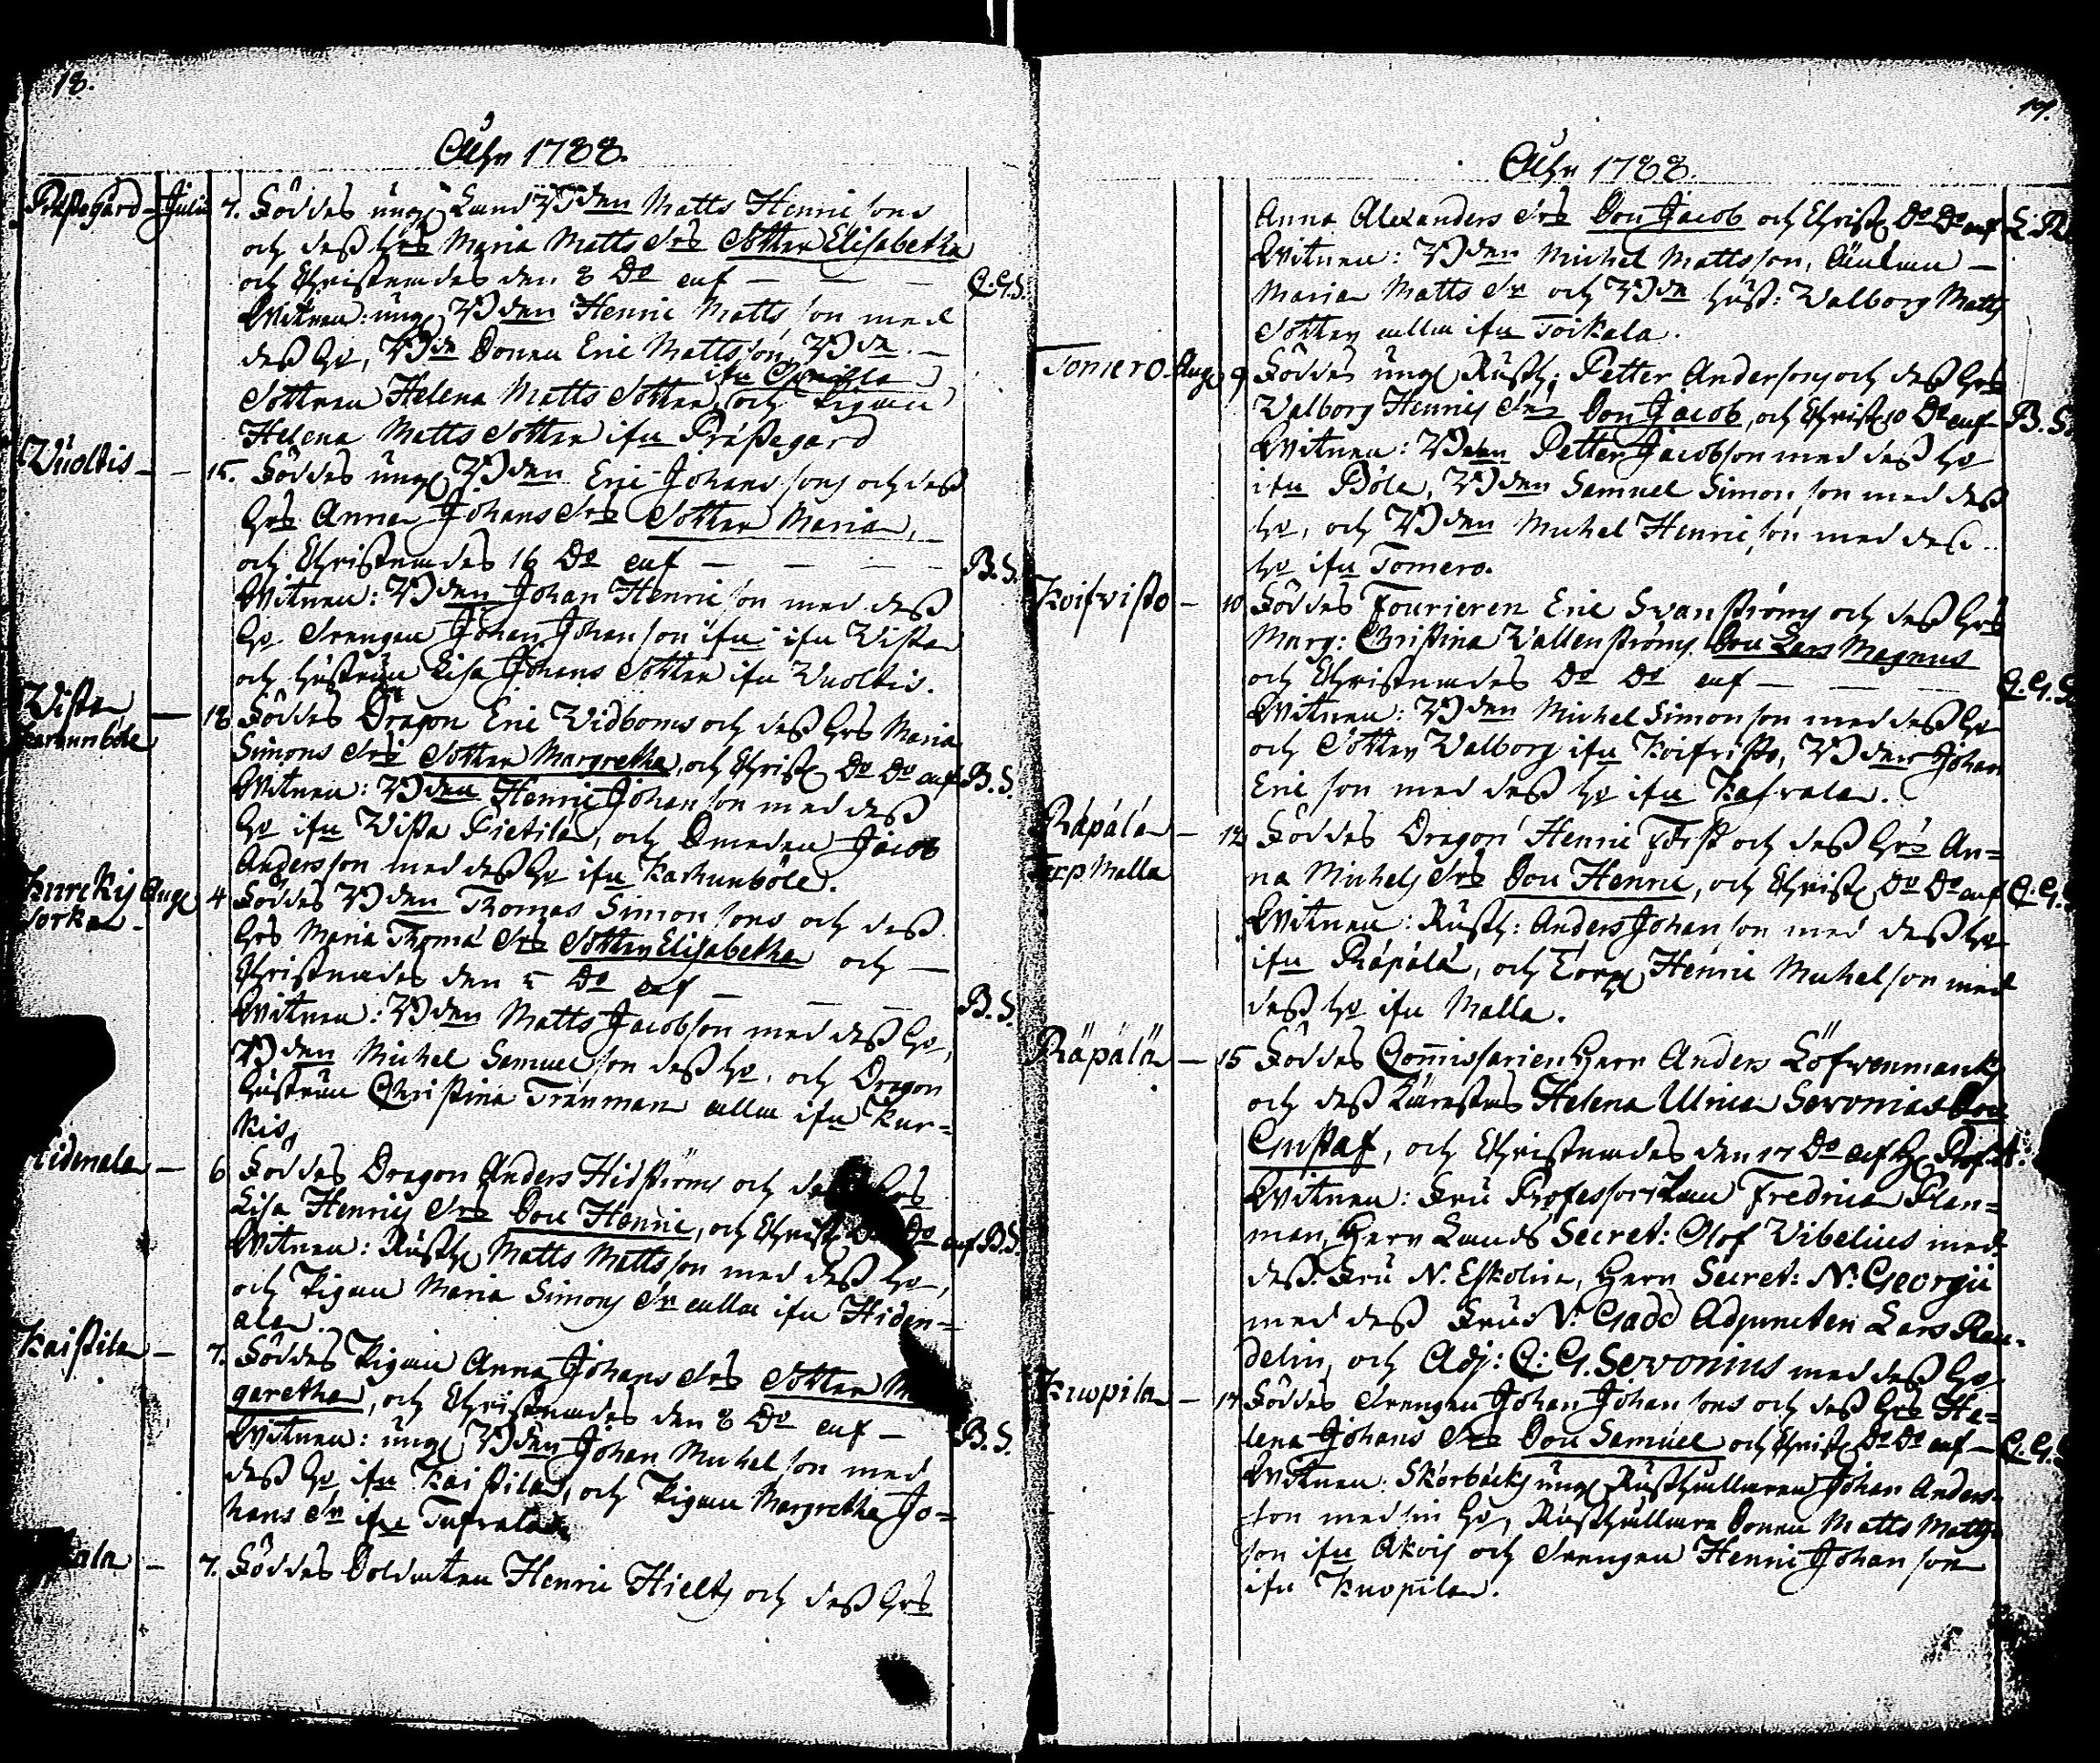 18.
Åhr 1788.
Præstegård - Julii 7. Föddes ung Land Bden Matts Henricsons
och dess Hrs Maria Matts Drs Dotter Elisabetha
och Christnades den 8 Do af — — — C.G.S.
Witnen: ung Bden Henric Mattsson med
dess Ho, Bde Sonen Eric Mattsson, Bde —
ifrn
Dottren Helena Matts Dotter, och Pigan
Helena Matts Dotter ifrn Præstegard
Wuoltis — — 15. Föddes ung Bden Eric Johanssons och dess
Hrs Anna Johans Drs Dotter Maria,
och Christnades 16 Do af — — — B.S.
Witnen: Bden Johan Henricson med dess
Ho Drengen Johan Johansson ifrn ifrn Wista
och Hustrun Lisa Johans Dotter ifrn Wuoltis.
Wista — 18 Föddes Dragon Eric Widboms och dess Hrs Maria
Karunböle Simons Drs Dotter Margretha, och Christ Do Do af B.S.
Witnen: Bden Henric Johansson med dess
Ho ifrn Wista Pietilä, och Smeden Jacob
Andersson med dess Ho ifrn Karhunböle.
Kurckis Aug 4 Föddes Bden Thomas Simonsons och dess
Sorka - Hrs Maria Thomæ Drs Dotter Elisabetha och —
Christnades den 5 Do af — — — B.S.
Witnen: Bden Matts Jacobson med dess Ho,
Bden Michel Samuelson dess Ho, och Dragon
Hustrun Christina Tränman alla ifrn Kur=
kis,
idenala — 6 Föddes Dragon Anders Hidströms och dess Hrs
Lisa Henrics Drs Son Henric, och Christ Do af B.S.
Witnen: Rusth Matts Mattsson med dess Ho,
och Pigan Maria Simons Dr alla ifrn Hiden=
ala.
Kaistila — 7. Föddes Pigan Anna Johans Drs Dotter M
garetha, och Christnades den 8 Do af — B.S.
Witnen: ung Bden Johan Michelson med
dess Ho ifrn Kaistila, och Pigan Margretha Jo=
hans Dr ifrn Tufvala
ala — 7. Föddes Soldaten Henric Hielts och dess Hrs
19.
Åhr 1788.
Anna Alexanders Drs Son Jacob och Christ Do Do af L.R.
Witnen: Bden Michel Mattsson, Änkan —
Maria Matts Dr och Bde Hust: Walborg Matts
Dotter alla ifrn Toikala.
Tomero Aug 9 Föddes ung Rusth: Petter Andersons och dess Hrs
Walborg Henrics Drs Son Jacob, och Christ 10 Do af B.S.
Witnen: Bden Petter Jacobson med dess Ho
ifrn Böle, Bden Samuel Simonson med dess
Ho, och Bden Michel Henricson med dess
Ho ifrn Tomero.
Koifvisto — 10 Föddes Fourieren Eric Svanströms och dess Hrs
Marg: Christina Wallenströms Son Lars Magnus
och Christnades Do Do af — — C.G.S.
Witnen: Bden Michel Simonson med dess Ho
och Dotter Walborg ifrn Koifvisto, Bden Johan
Ericson med dess Ho ifrn Kafvala.
Räpälä — 12 Föddes Dragon Henric Forst och dess Hrs An=
Torp. Malla na Michels Drs Son Henric, och Christ Do Do af C.G.
Witnen: Rusth: Anders Johanson med dess Ho
ifrn Räpälä, och Torp Henric Michelson med
dess Ho ifrn Malla.
Räpälä — 15 Föddes Commissarien Herr Anders Löfvenmarks
och dess Kärestas Helena Ulrica Servonias Son
Gustaf, och Christnades den 17 Do af H. Prof.
Witnen: Fru Professorskan Fredrica Plan=
man, Herr Lands Secret: Olof Wibelius med
dess Fru N. Eskolin, Herr Secret: N. Georgii
med dess Fru N. Gadd Adjuncten Lars Ran=
delin, och Adj: C: G. Servonius med dess Ho
Kuopila — 17 Föddes Drengen Johan Johansons och dess Hrs He=
lena Johans Drs Son Samuel och Christ Do Do af — C.G.
Witnen: Skörbäcks ung Rusthållaren Johan Anders=
son med sin Ho, Rusthållare Sonen Matts Matts=
son ifrn Akois och Drengen Henric Johanson
ifrn Kuopila.